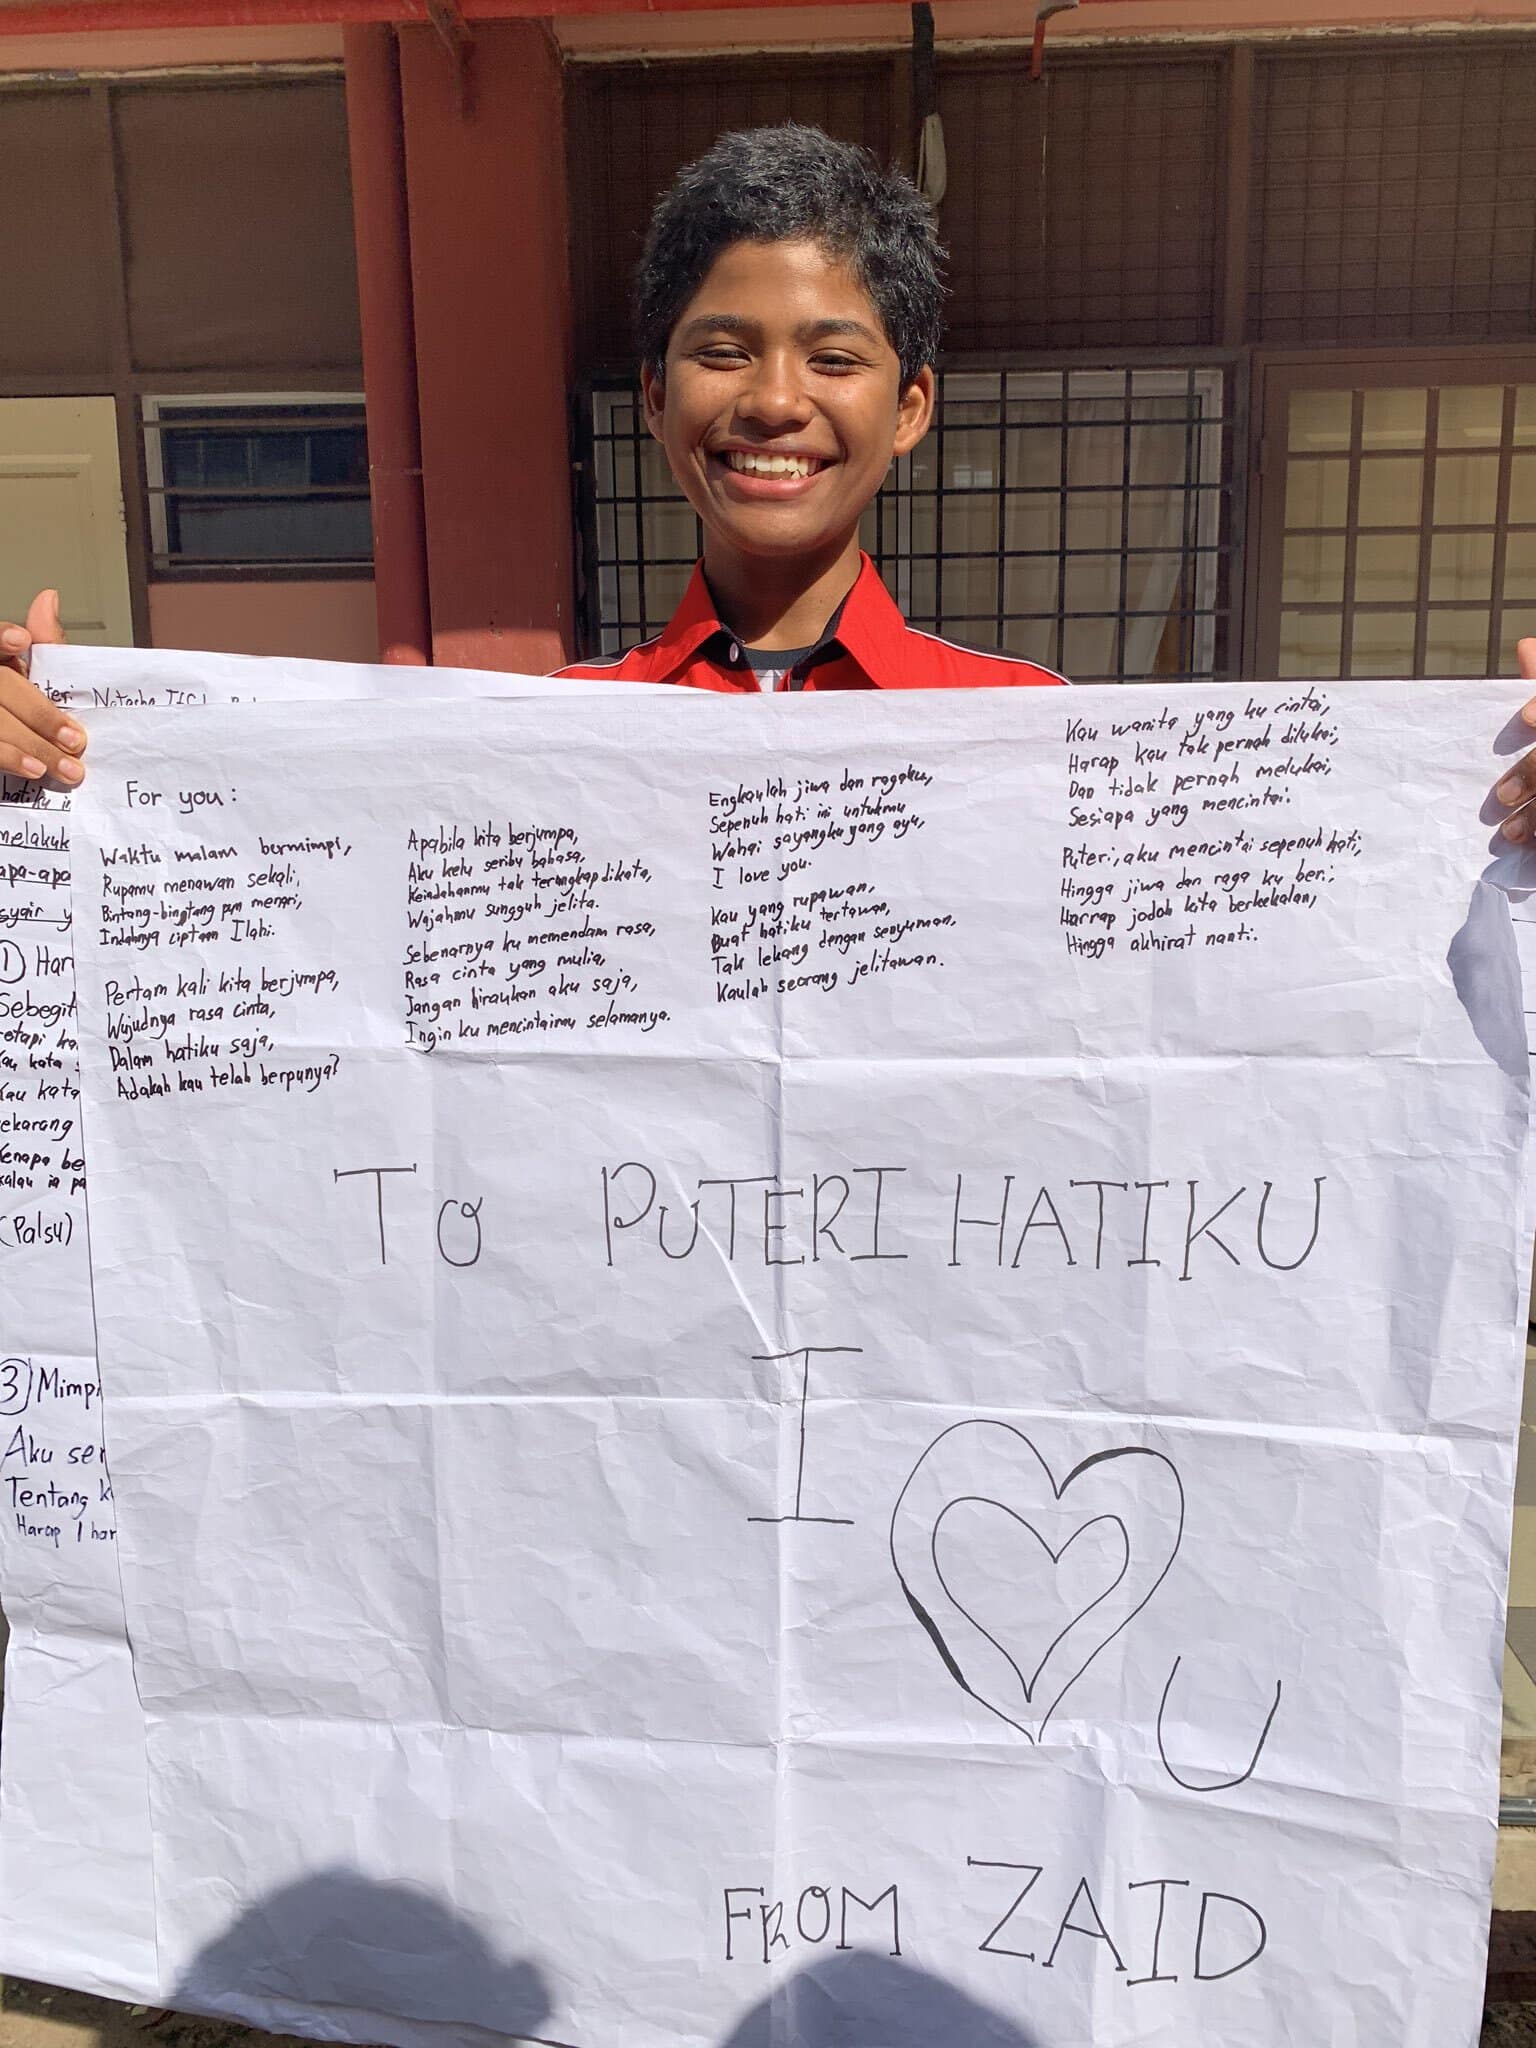 Natasha
hatiku
melakuk
apa-apa
syair y
1 Har
Sebegit
tetapi
Kau kata
Kau kata
sekarang
Kenapa be
kalau ia pa
(Palsu)
3 Mimpi
Aku ser
Tentang k
Harap 1 har
For you:
Waktu malam bermimpi,
Rupamu menawan sekali,
Bintang-bingtang pun menari,
Indahnya ciptaan Ilahi.
Pertam kali kita berjumpa,
Wujudnya rasa cinta,
Dalam hatiku saja,
Adakah kau telah berpunya?
Apabila kita berjumpa,
Aku kelu seribu bahasa,
Keindahanmu tak terungkap dikata,
Wajahmu sungguh jelita.
Sebenarnya ku memendam rasa,
Rasa cinta yang mulia,
Jangan hiraukan aku saja,
Ingin ku mencintaimu selamanya.
Engkaulah jiwa dan ragaku,
Sepenuh hati ini untukmu
Wahai sayangku yang ayu,
I love you.
Kau yang rupawan,
Buat hatiku tertawan,
Tak lekang dengan senyuman,
Kaulah seorang jelitawan.
Kau wanita yang ku cintai,
Harap kau tak pernah dilukai,
Dan tidak pernah melukai,
Sesiapa yang mencintai.
Puteri, aku mencintai sepenuh hati,
Hingga jiwa dan raga ku beri,
Harrap jodoh kita berkekalan,
Hingga akhirat nanti.
TO PUTERI HATIKU
I
U
FROM ZAID